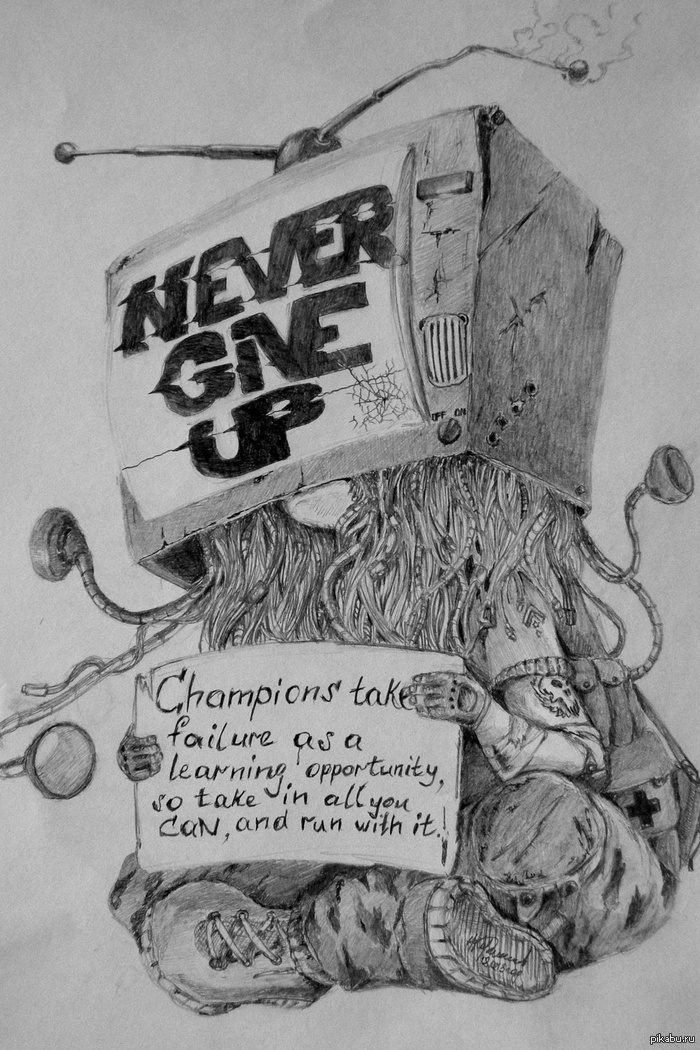 NEVER
GIVE
UP
OFF ON
Champions take
failure as a
learning opportunity,
so take in all you
can, and run with it.
pikabu.ru